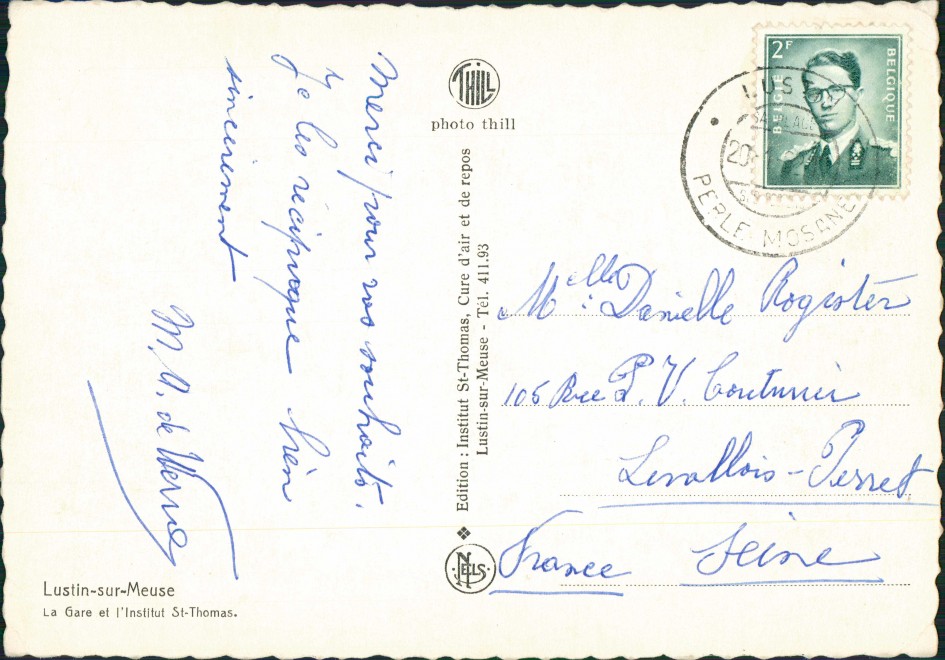 Merci pour vos souhaits.
Je les réciproque bien
sincèrement
M. A. de
THILL
photo thill
Edition : Institut St-Thomas, Cure d'air et de repos
Lustin-sur-Meuse - Tél. 411.93
NELS
2F
BELGIE
BELGIQUE
LUST
20
PERLE MOSANE
Melle Danielle Rogister
105 Rue P. V. Couturier
Levallois-Perret
France Seine
Lustin-sur-Meuse
La Gare et l'Institut St-Thomas.